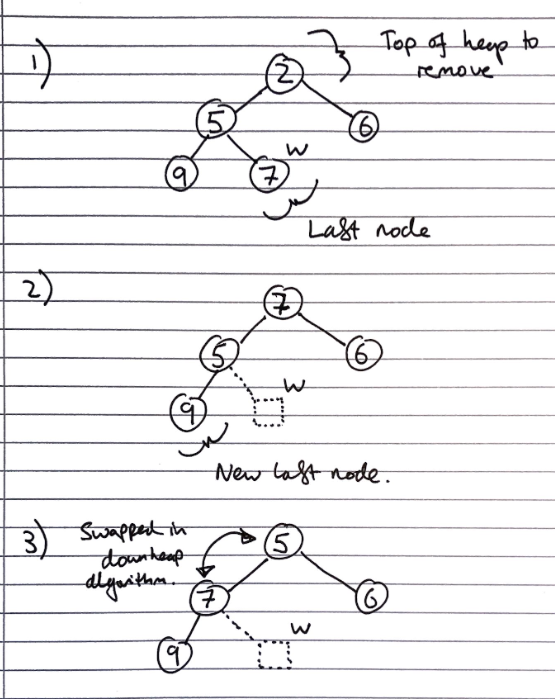 1)
Top of heap to
remove
2
5
6
9
7
W
Last node
2)
7
5
6
9
W
New last node.
3)
Swapped in
downheap
algorithm.
5
7
6
9
W